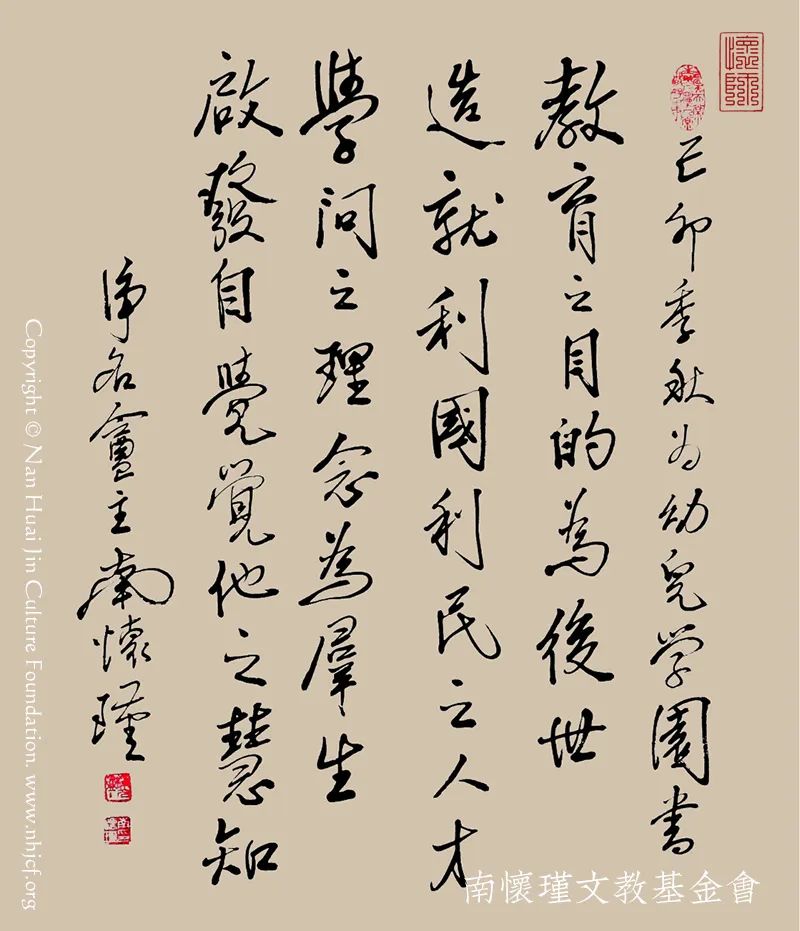 懷師
己卯季秋為幼兒學園書
教育之目的為後世
造就利國利民之人才
學問之理念為羣生
啟發自覺覺他之慧知
淨名盦主南懷瑾
南懷瑾文教基金會
Copyright © Nan Huai Jin Culture Foundation. www.nhjcf.org